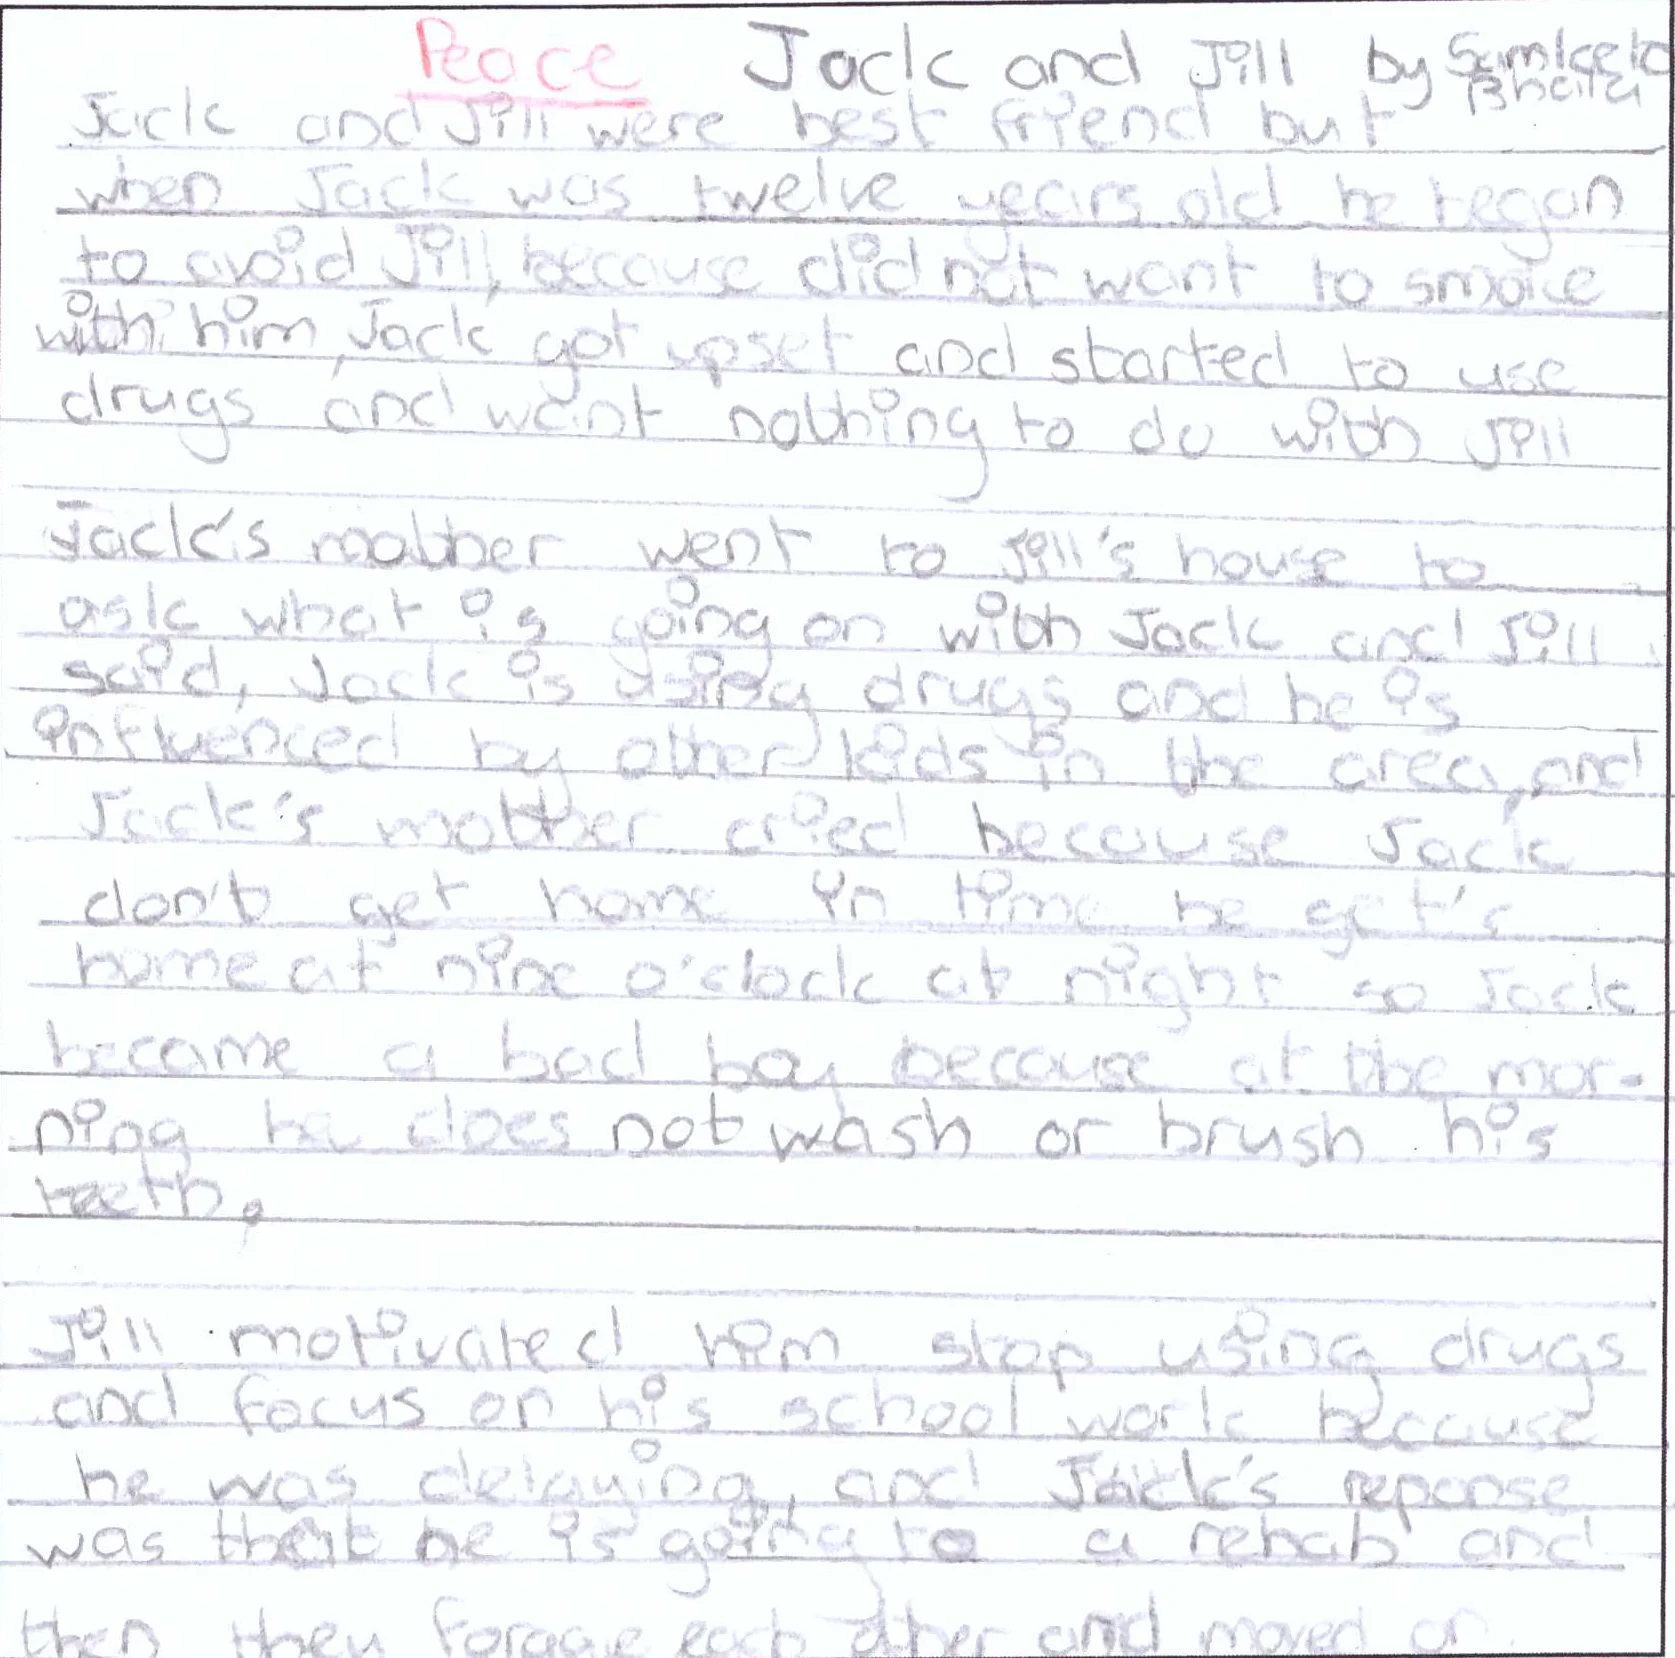 Peace Jack and Jill by
Jack and Jill were best friend but
when Jack was twelve years old he began
to avoid Jill, because did not want to smoke
with him, Jack got upset and started to use
drugs and want nothing to do with Jill
Jack's mother went to Jill's house to
ask what is going on with Jack and Jill
said, Jack is using drugs and he is
influenced by other kids in the area, and
Jack's mother cried because Jack
don't get home in time he get's
home at nine o'clock at night so Jack
became a bad boy because at the mor-
ning he does not wash or brush his
teeth.
Jill motivated him stop using drugs
and focus on his school work because
he was delaying, and Jack's reponse
was that he is going to a rehab and
then they forgave each other and moved on